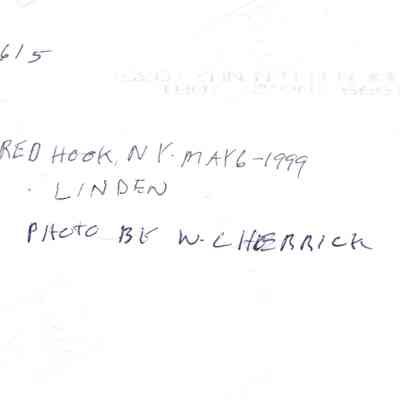 615
RED HOOK, NY. MAY 6-1999
. LINDEN
PHOTO BY W. CHERRICK